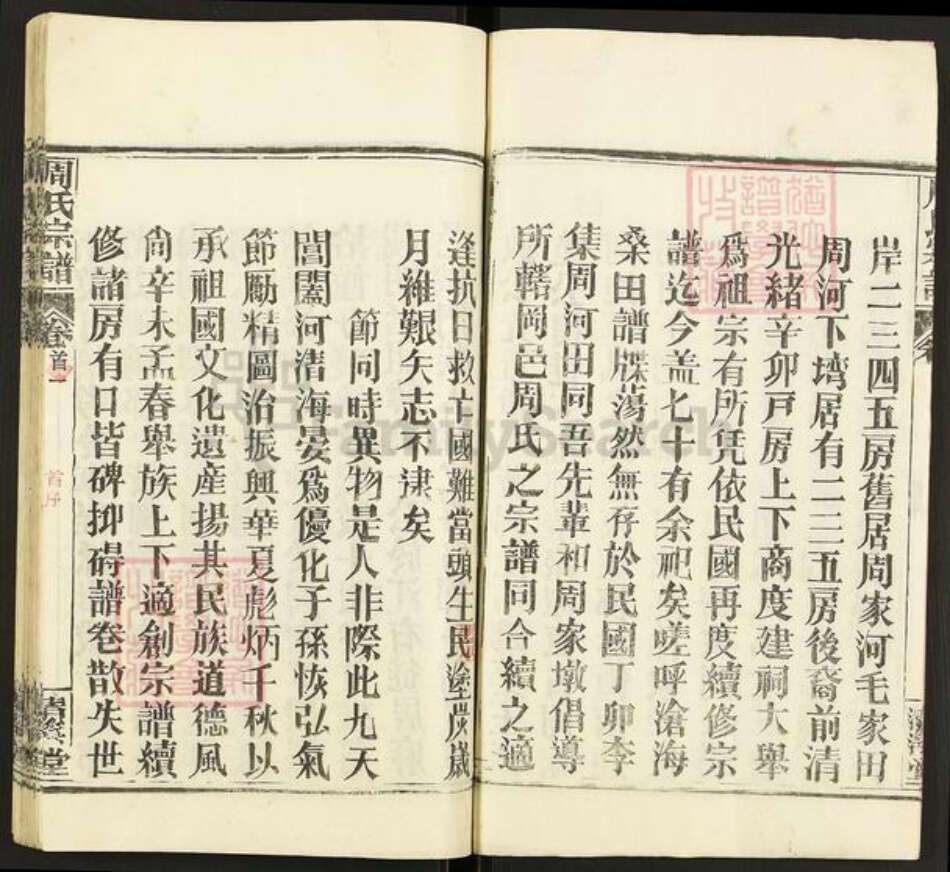 岸二三四五房舊居周家河毛家田
周河下塆居有二三五房後裔前清
光緒辛卯戸房上下商度建祠大舉
爲祖宗有所凭依民國再度續修宗
譜迄今盖七十有余祀矣嗟呼滄海
桑田譜牒蕩然無存於民國丁卯李
集周河田同吾先輩和周家墩倡導
所轄岡邑周氏之宗譜同合續之適
逢抗日救亡國難當頭生民塗炭歲
月維艱矢志不逮矣
節同時異物是人非際此九天
閶闔河清海晏爲優化子孫恢弘氣
節勵精圖治振興華夏彪炳千秋以
承祖國文化遺産揚其民族道德風
尙辛未孟春舉族上下適創宗譜續
修諸房有口皆碑抑碍譜卷散失世
周氏宗譜
卷首一
首序
堂
FamilySearch